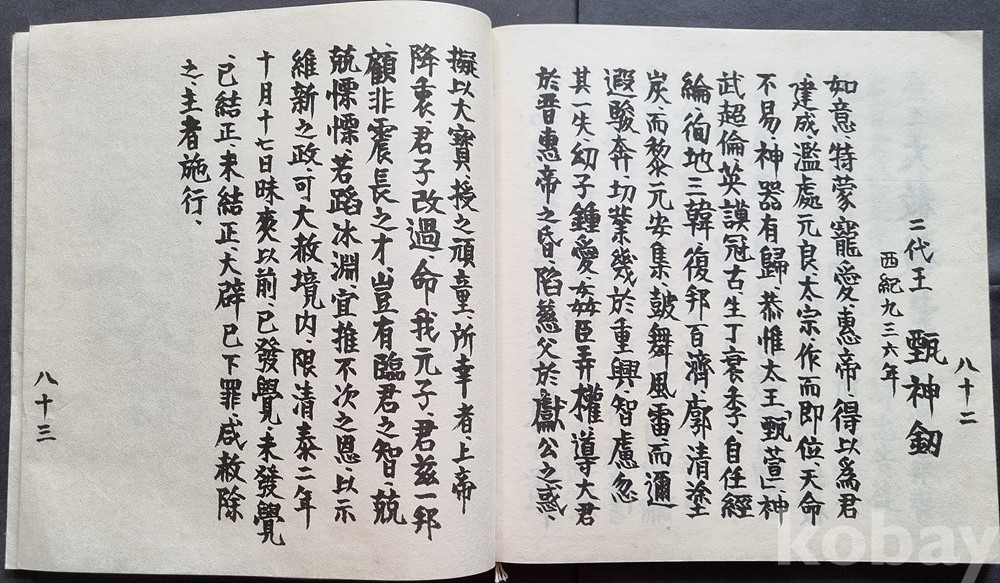 八十二
二代王 甄神劒
西紀九三六年
如意、特蒙寵愛、惠帝、得以爲君
建成濫處元良、太宗、作而即位、天命
不易、神器有歸、恭惟太王「甄萱」神
武超倫、英謨冠古、生丁衰季、自任經
綸、徇地三韓、復邦百濟、廓清塗
炭、而黎元安集、鼓舞風雷、而邇
遐駿奔、切業幾於重興、智慮忽
其一失、幼子鍾愛、姦臣弄權、導大君
於晋惠帝之昏、陷慈父於獻公之惑、
擬以大寶授之頑童、所幸者、上帝
降衷、君子改過、命我元子、君玆一邦
顧非震長之才、豈有臨君之智、兢
兢慄慄、若蹈冰淵、宜推不次之恩、以示
維新之政、可大赦境內、限清泰二年
十月十七日昧爽以前、已發覺、未發覺
、已結正、未結正、大辟已下罪、咸赦除
之、主者施行、
八十三
kobay